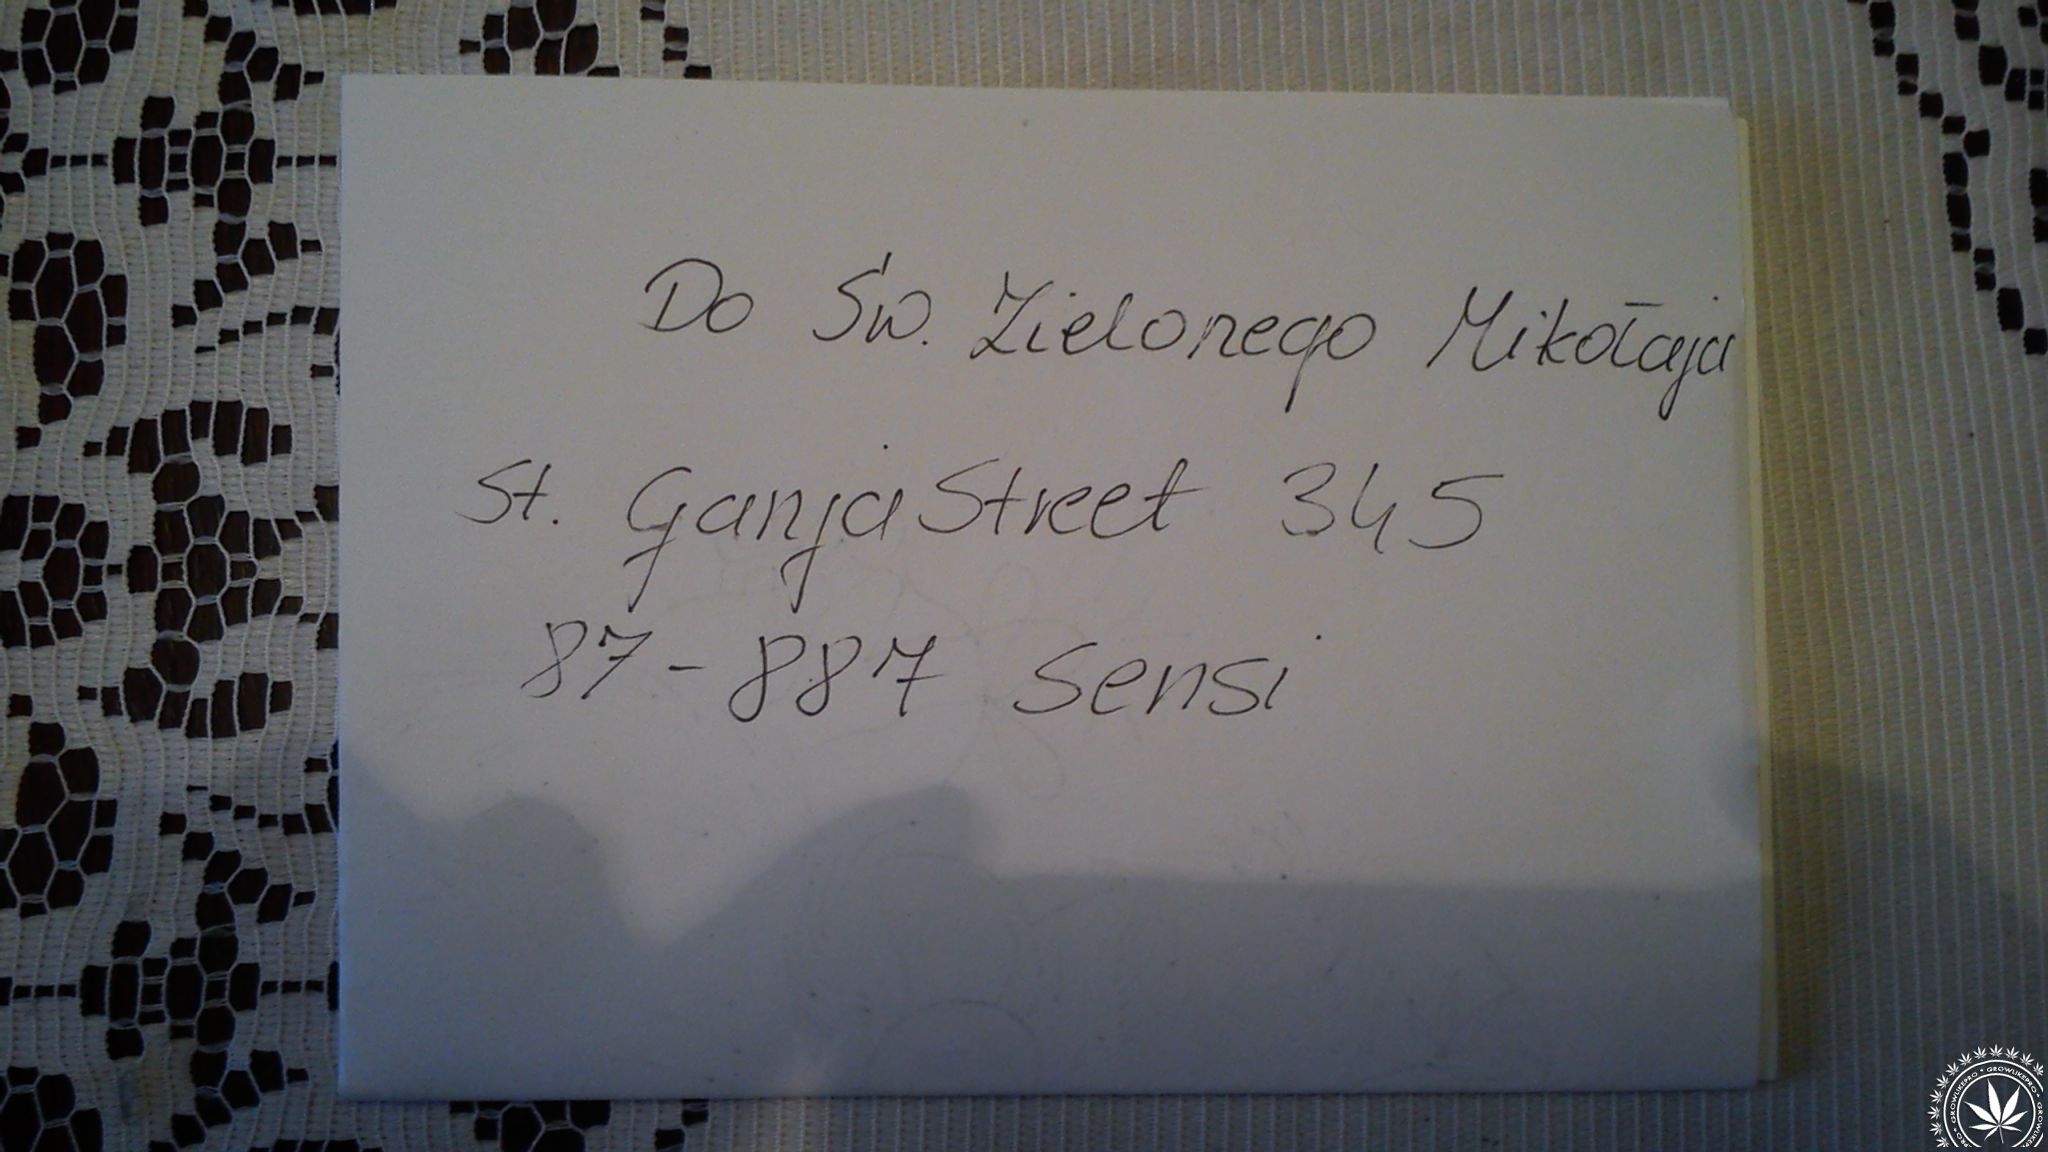 Do Św. Zielonego Mikołaja
St. Ganja Street 345
87-887 Sensi
GROWLIKEPRO • GROWLIKEPRO • GROWLIKEPRO